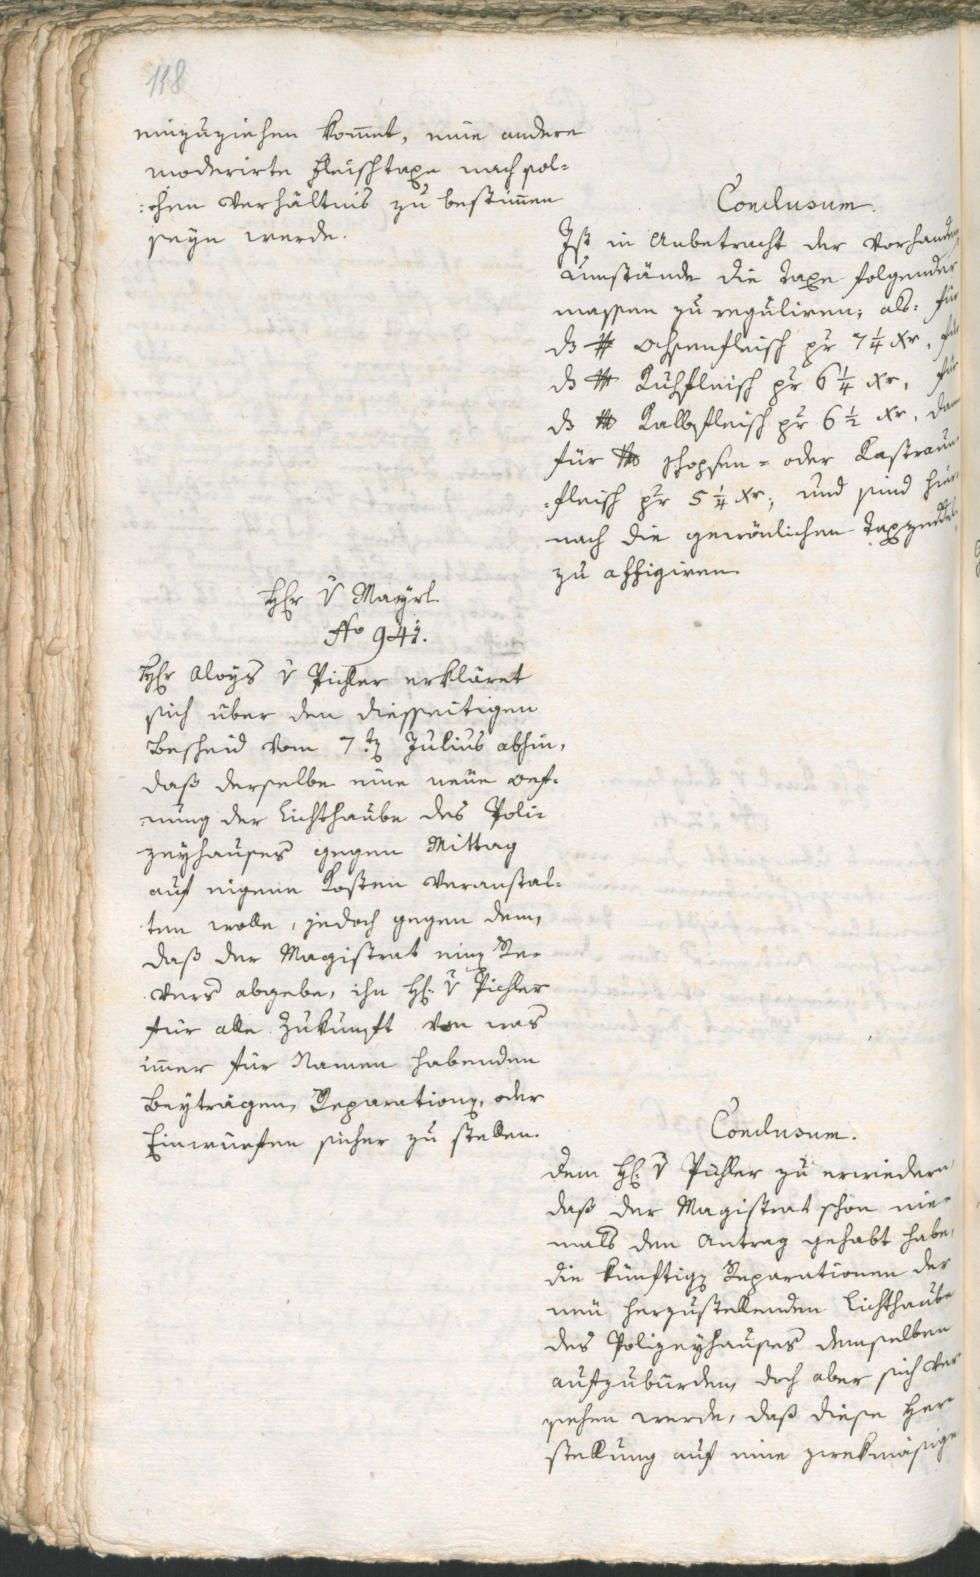 118
einzuziehen kom̅et, eine andere
moderirte Fleischtaxe nach sol-
:chen Verhältnis zu bestim̅en
seyn werde.
Conclusum.
Ist in Anbetracht der vorhanden
Umstände die Taxe folgender
massen zu reguliren; als: für
das ℔ Ochsenfleisch pr 7 1/4 xr, für
das ℔ Kuhfleisch pr 6 1/4 xr, für
das ℔ Kalbfleisch pr 6 1/2 xr, dann
für ℔ Schopsen- oder Kastraun-
:fleisch pr 5 1/4 xr; und sind hier-
nach die gewönlichen Taxzeddel
zu affigiren.
Hr v Mayrl.
No 941.
Hr Aloys v Pichler erkläret
sich über den diesseitigen
Bescheid vom 7ten Julius abhin,
daß derselbe eine neue Oef-
:nung der Lichthaube des Poli-
zeyhauses gegen Mittag
auf eigene Kosten veranstal-
:ten wolle, jedoch gegen dem,
daß der Magistrat einen Re-
vers abgebe, ihn H: v Pichler
für alle Zukunft von was
im̅er für Namen habenden
Beyträgen, Reparationen, oder
Einwürfen sicher zu stellen.
Conclusum.
Dem H: v Pichler zu erwiedern,
daß der Magistrat schon nie-
mals den Antrag gehabt habe,
die künftigen Reparationen der
neu herzustellenden Lichthaube
des Polizeyhauses demselben
aufzubürden, doch aber sich ver
sehen werde, daß diese Her-
stellung auf eine zwekmäsige